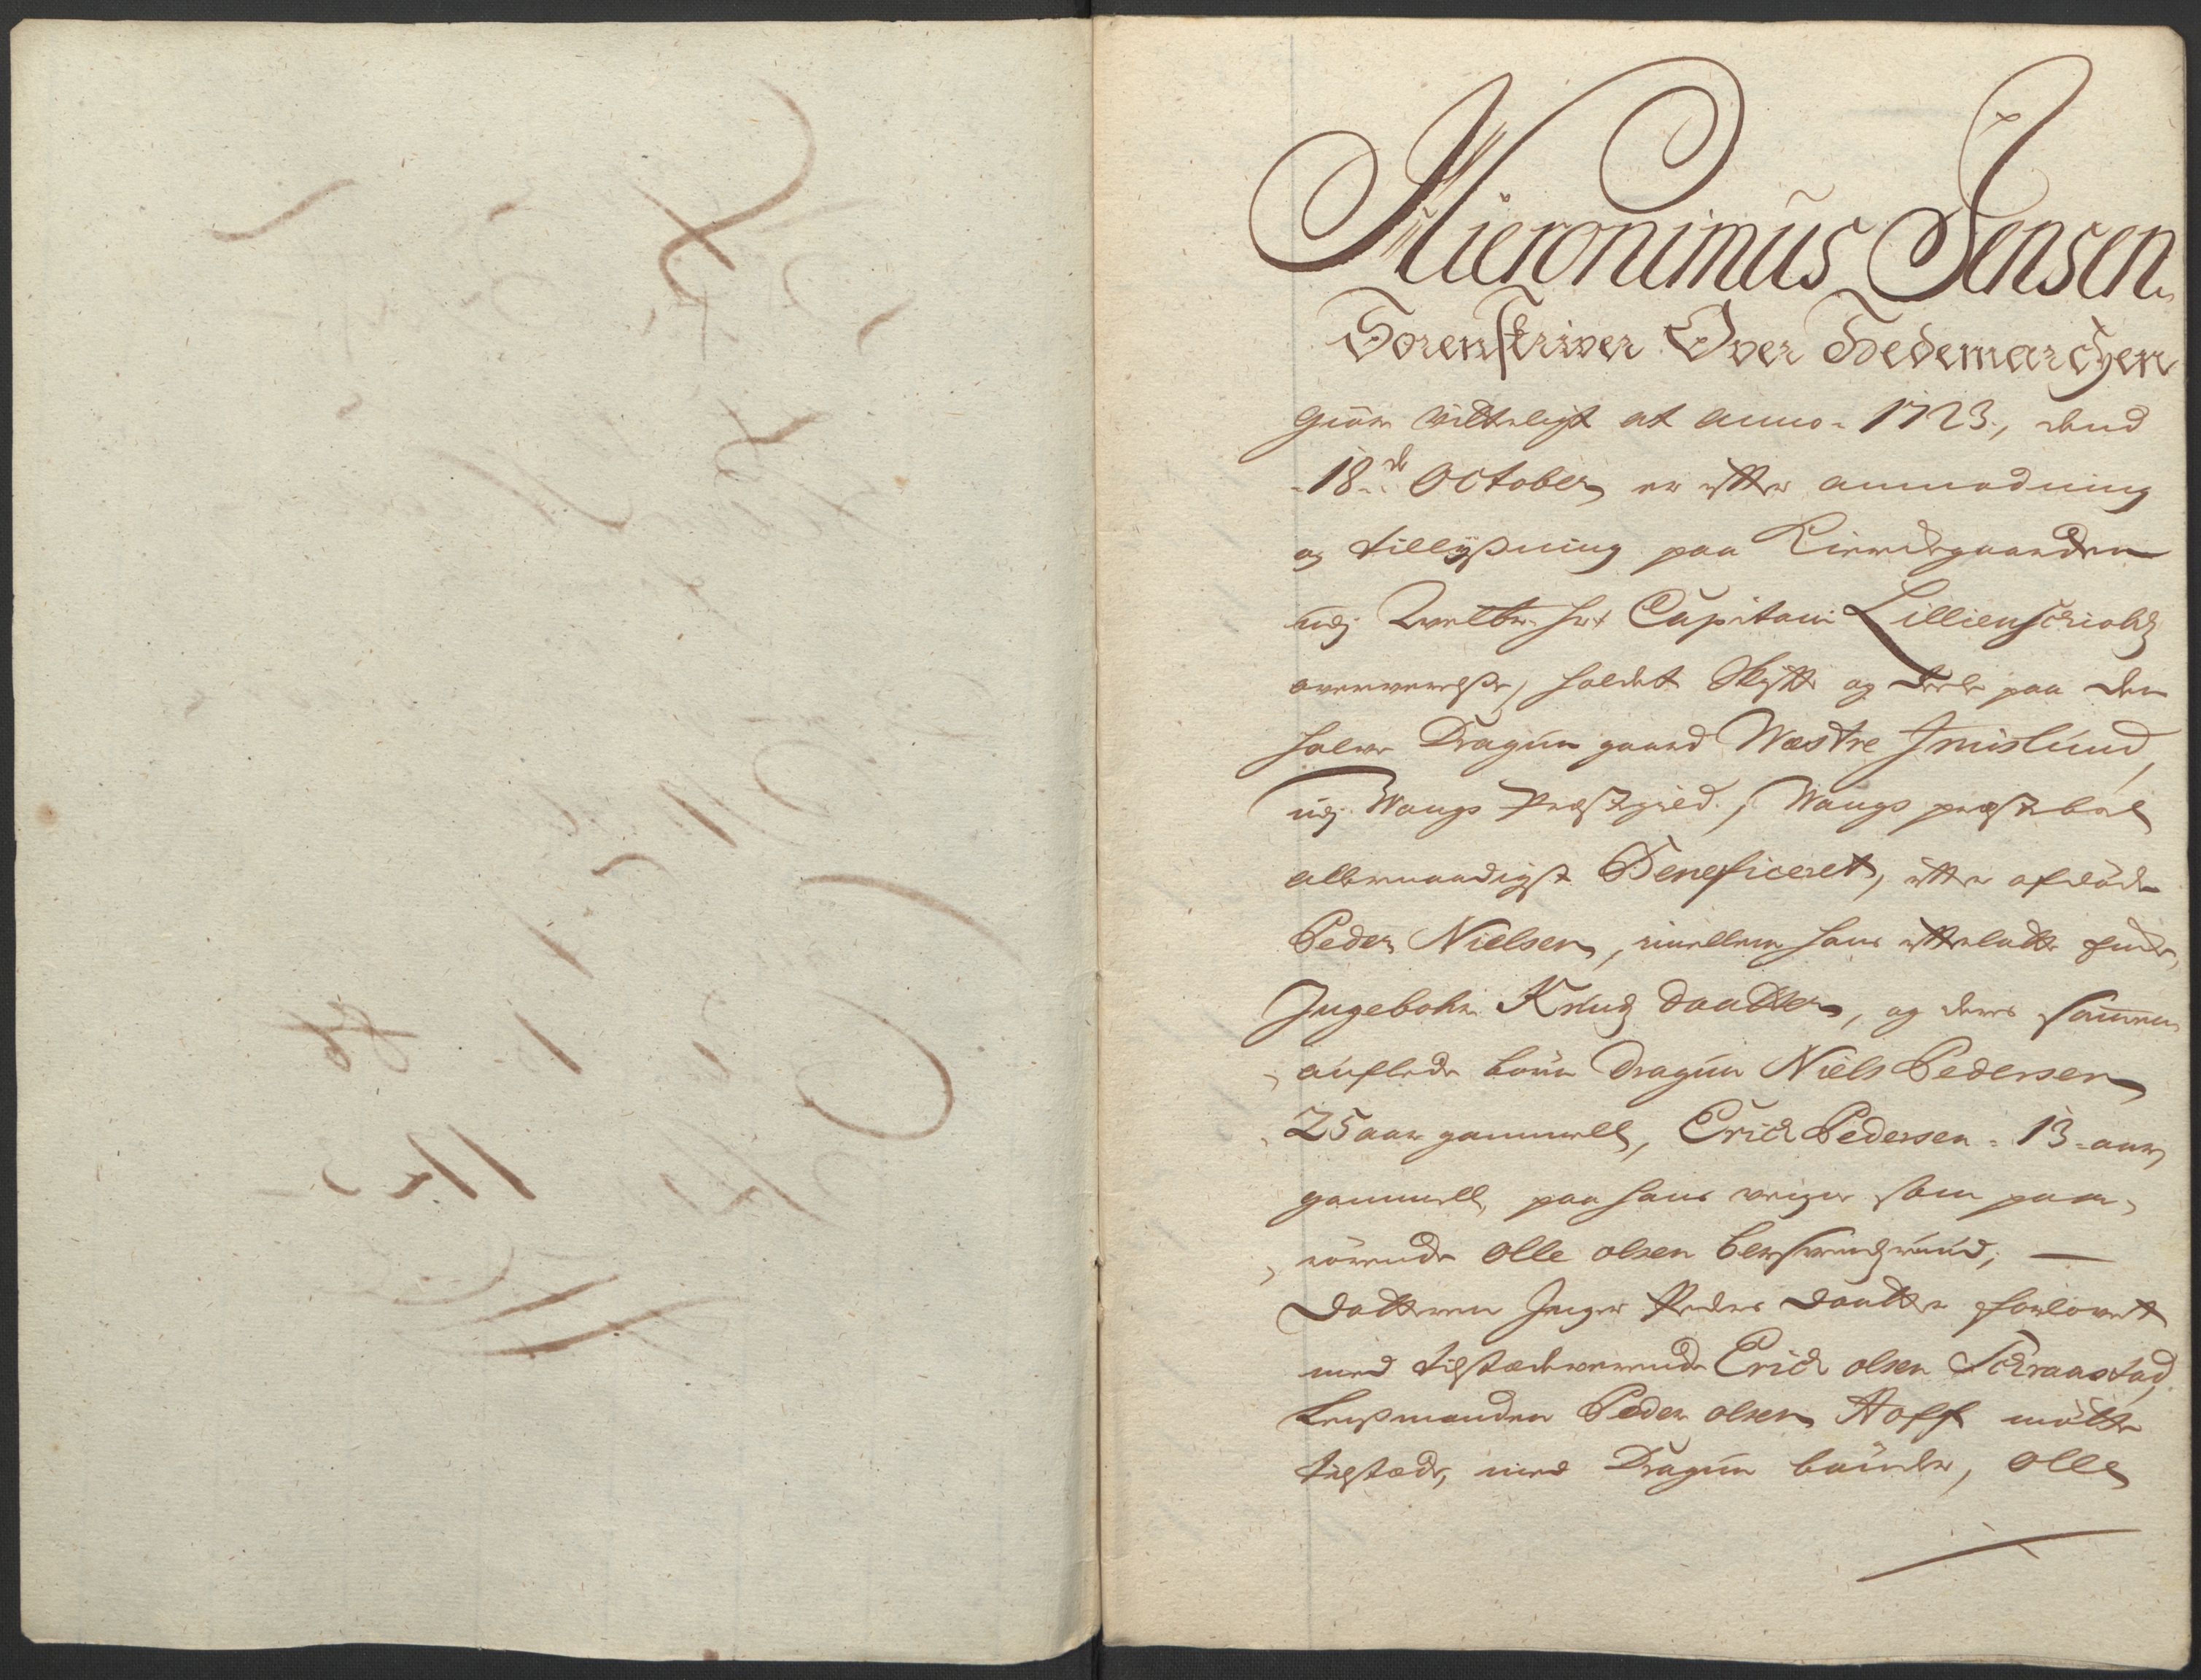 Hieronimus Jensen
Sorenskriver Over Hedemarchen
giör Vitterligt at anno 1723, dend
18de October er effter anmodning
og tillysning paa Kierkegaarden
udj Velb: hr Capitain Lillienschiolds
overværelse, holdet Skiffte og deele paa den
halve Dragun gaard Wæstre Imislund
udj Wangs Præstegield, Wangs præstebol
allernaadigst Beneficeret, effter afdöde
Peder Nielsen, imellem hans effterladte Encke,
Ingebohr Knudz daatter, og deres sammen
auflede börn Dragun Niels Pedersen
25 aar gammell, Erich Pedersen 13 aar
gammell, paa hans veigne som paa-
rörende Olle olsen
Datteren Inger Peders Daatter forlovet
med tilstædeværende Erich olsen Schraastad
Lensmanden Peder olsen Hoff mötte
tilstæde, med Dragun bönder, Olle